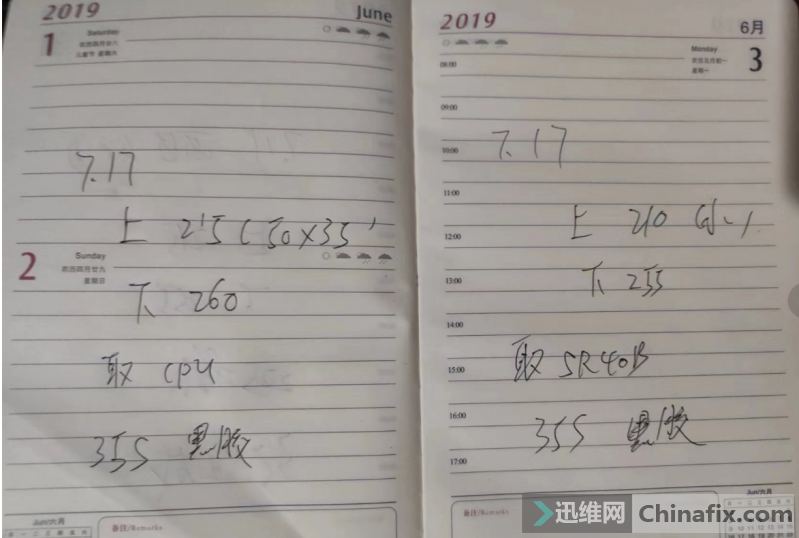 2019 June
1 Saturday
农历四月廿八
儿童节 星期六
7.17
上 215 (50×35'
2 Sunday
农历四月廿九
星期日
下 260
取 CPU
355 黑胶
Jun/六月
备注/Remarks
2019 6月
Monday 3
农历五月初一
星期一
08:00
09:00
7.17
10:00
11:00
上 210
12:00
下 255
13:00
14:00
取 SR40B
15:00
16:00
355 黑胶
17:00
Jun/六月
备注/Remarks
迅维网 Chinafix.com